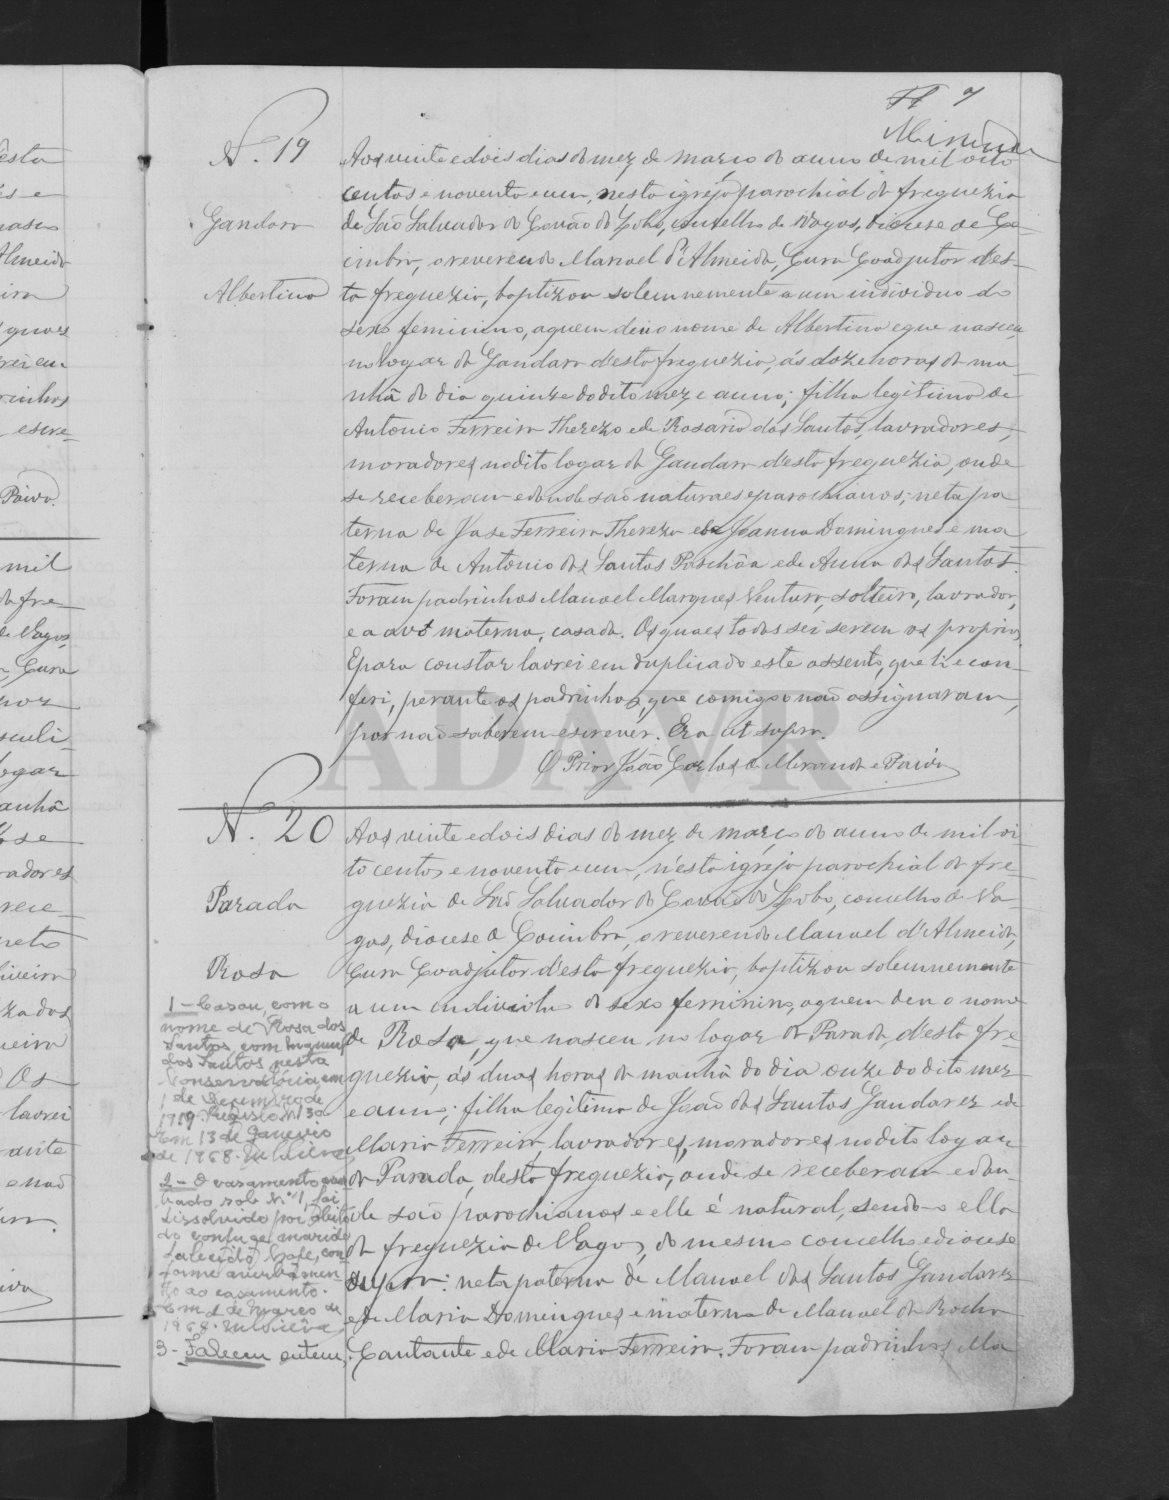 7
Miranda
N. 19
Gandara
Albertina
Aos vinte e dois dias do mez de março do anno de mil oito
centos e noventa e um, nesta igreja parochial da freguezia
de São Salvador do Covão do Lobo, concelho de Vagos, diocese de Co-
imbra, o reverendo Manoel d'Almeida, Cura Coadjutor d'es-
ta freguezia, baptizou solemnemente a um individuo do
sexo feminino, a quem deu o nome de Albertina e que nasceu
no logar da Gandara d'esta freguezia, ás doze horas da ma-
nhã do dia quinze do dito mez e anno; filha legitima de
Antonio Ferreira Thereza e de Rosaria dos Santos, lavradores,
moradores no dito logar da Gandara d'esta freguezia, onde
se receberam e donde são naturaes e parochianos; neta pa
terna de José Ferreira Thereza e de Joanna Domingues e ma
terna de Antonio dos Santos Paschôa e de Anna dos Santos.
Foram padrinhos Manoel Marques Ventura, solteiro, lavrador,
e a avó materna, casada. Os quaes todos sei serem os proprios.
E para constar lavrei em duplicado este assento, que li e con-
feri, perante os padrinhos, que comigo não assignaram,
por não saberem escrever. Era ut supra.
O Prior João Carlos de Miranda e Paiva
N. 20
Parada
Rosa
Aos vinte e dois dias do mez de março do anno de mil oi
to centos e noventa e um, n'esta igreja parochial da fre-
guezia de São Salvador do Covão do Lobo, concelho de Va-
gos, diocese de Coimbra, o reverendo Manoel d'Almeida,
Cura Coadjutor d'esta freguezia, baptizou solemnemente
a um individuo do sexo feminino, a quem deu o nome
de Rosa, que nasceu no logar da Parada, d'esta fre-
guezia, ás duas horas da manhã do dia onze do dito mez
e anno; filha legitima de João dos Santos Gandarez e de
Maria Ferreira, lavradores, moradores no dito logar
da Parada, desta freguezia, onde se receberam e don
de são parochianos e elle é natural, sendo-o ella
da freguezia de Vagos, do mesmo concelho e diocese
neta paterna de Manoel dos Santos Gandarez
e de Maria Domingues e materna de Manoel da Rocha
Cantante e de Maria Ferreira. Foram padrinhos Ma
1 - Casou, com o
nome de Rosa dos
Santos, com
dos Santos, nesta
Conservatória, em
1 de Dezembro de
1919. Registo nº 30
Em 13 de Janeiro
de 1968. MSilva
2 - O casamento aver
bado sob nº 1, foi
dissolvido por óbito
do conjuge marido
falecido hoje, con-
forme averbamen-
to ao casamento.
Em 1 de Março de
1968. MSilva
3 - Faleceu ontem,